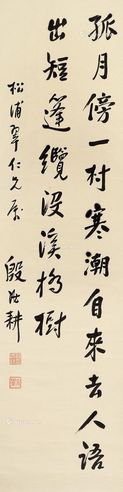 孤月傍一村寒潮自來去人語
出短篷纜没溪橋樹
松浦翠仁先屬
殷汝耕